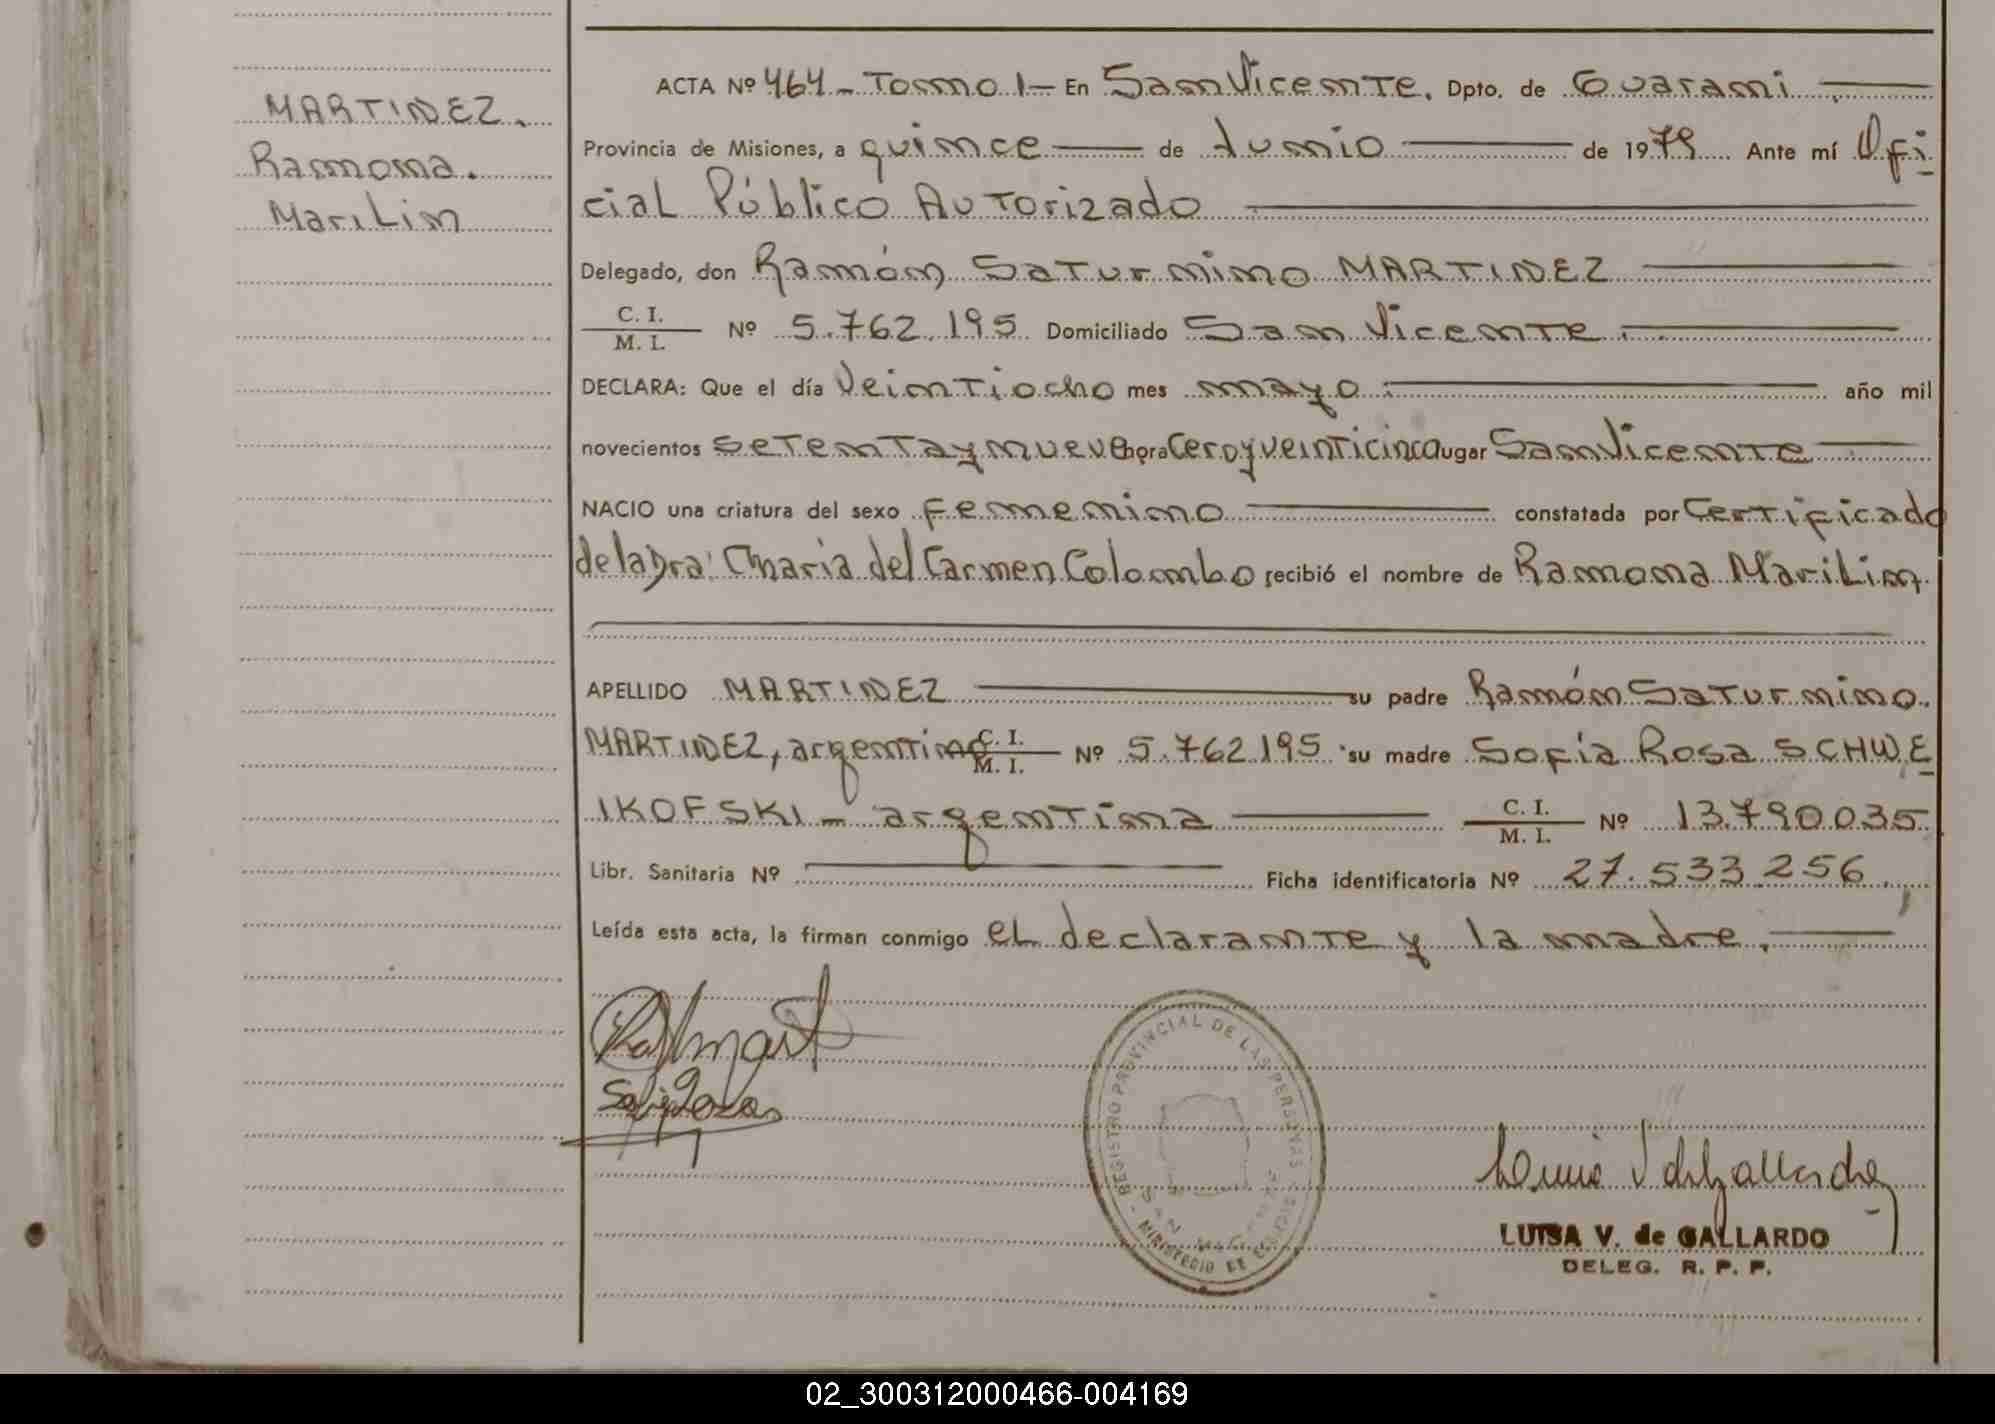 MARTINEZ.
Ramona.
Marilin
ACTA Nº 464 - Tomo I - En San Vicente. Dpto. de Guarani
Provincia de Misiones, a quince de Junio de 1979 Ante mí Ofi
cial Público Autorizado
Delegado, don Ramón Saturnino MARTINEZ
C. I.
M. I. Nº 5.762.195 Domiciliado San Vicente.
DECLARA: Que el día Veintiocho mes mayo año mil
novecientos setenta y nueve hora Cero y veinticinco lugar San Vicente
NACIO una criatura del sexo femenino constatada por Certificado
de la Dra: Maria del Carmen Colombo recibió el nombre de Ramona Marilin.
APELLIDO MARTINEZ su padre Ramón Saturnino.
MARTINEZ, argentino C. I. M. I. Nº 5.762.195 su madre Sofia Rosa SCHWE
IKOFSKI - argentina C. I. M. I. Nº 13.790.035
Libr. Sanitaria Nº Ficha identificatoria Nº 27.533.256
Leída esta acta, la firman conmigo el declarante y la madre.
REGISTRO PROVINCIAL DE LAS PERSONAS
SAN VICENTE
MINISTERIO DE
LUISA V. de GALLARDO
DELEG. R. P. P.
02_300312000466-004169